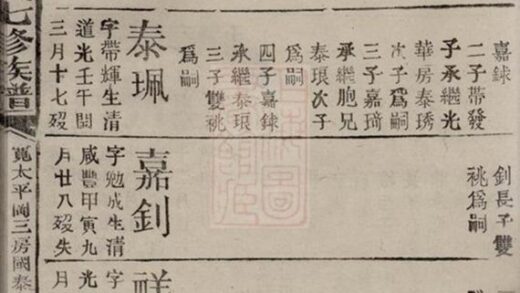 嘉錸
二子帶發
子承繼光
華房泰琇
次子爲嗣
三子嘉琦
承繼胞兄
泰琅次子
爲嗣
四子嘉錸
承繼泰琅
三子雙祧
爲嗣
泰珮
字帶輝生清
道光壬午閏
三月十七歿
釗長子雙
祧爲嗣
嘉釗
字勉成生清
咸豐甲寅九
月廿八歿失
祥
字
光
月
七修族譜
寬太平岡三房國泰